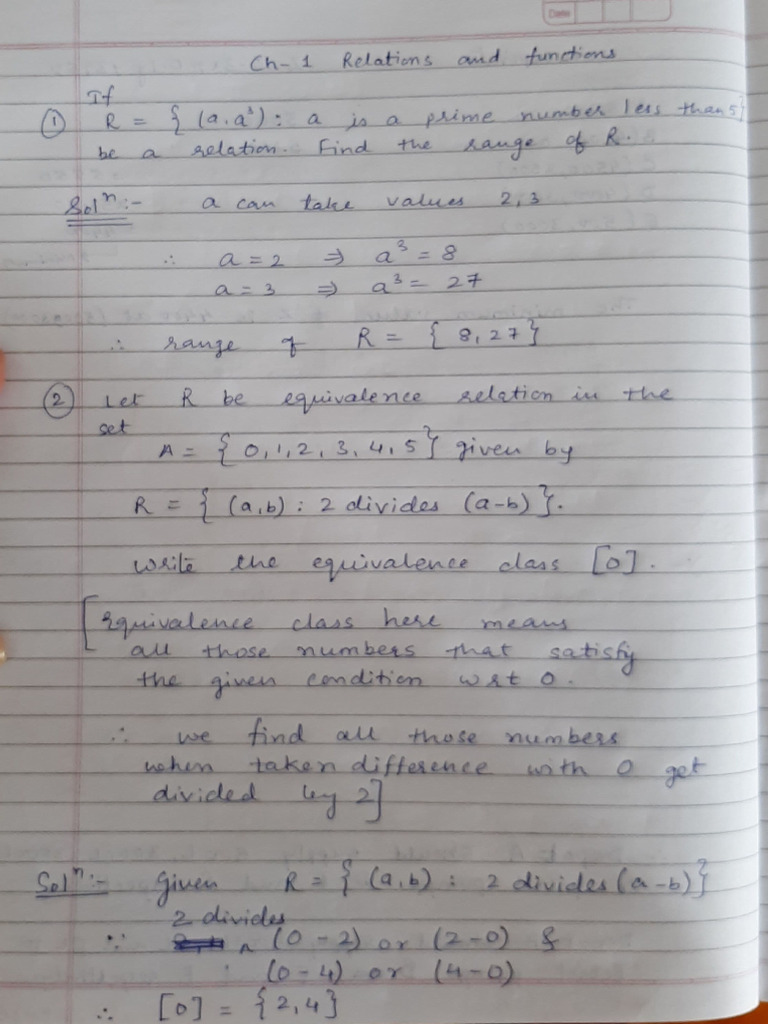 Date
Ch-1 Relations and functions
If
① R = { (a, a³) : a is a prime number less than 5}
be a relation. Find the range of R.
Solⁿ:- a can take values 2, 3
∴ a = 2 ⇒ a³ = 8
a = 3 ⇒ a³ = 27
∴ range of R = { 8, 27 }
② Let R be equivalence relation in the
set
A = { 0, 1, 2, 3, 4, 5 } given by
R = { (a, b) : 2 divides (a-b) }.
write the equivalence class [0].
[Equivalence class here means
all those numbers that satisfy
the given condition wrt 0.
∴ we find all those numbers
when taken difference with 0 get
divided by 2]
Solⁿ:- Given R = { (a, b) : 2 divides (a-b) }
2 divides
∵ (0 - 2) or (2 - 0) &
(0 - 4) or (4 - 0)
∴ [0] = { 2, 4 }